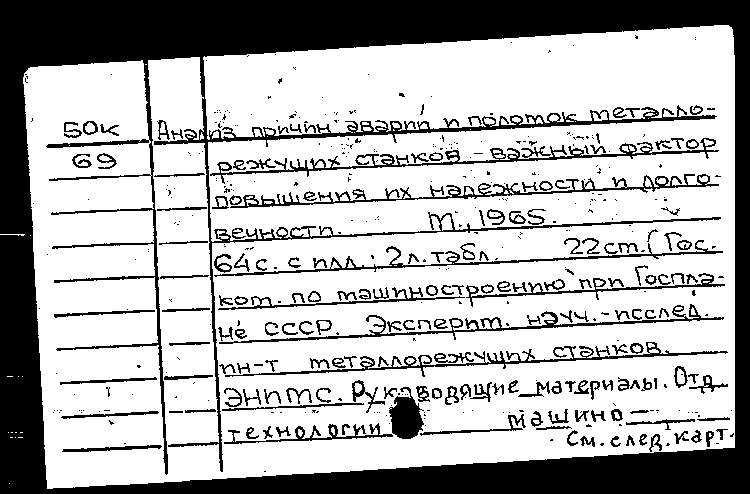 50к Анализ причин аварий и поломок металло-
69 режущих станков - важный фактор
повышения их надежности и долго-
вечности. М., 1965.
64 с. с илл.; 2 л. табл. 22 см. (Гос.
ком. по машиностроению при Госпла-
не СССР. Эксперим. науч.-исслед.
ин-т металлорежущих станков.
ЭНИМС. Руководящие материалы. Отд.
технологии машино-
См. след. карт.